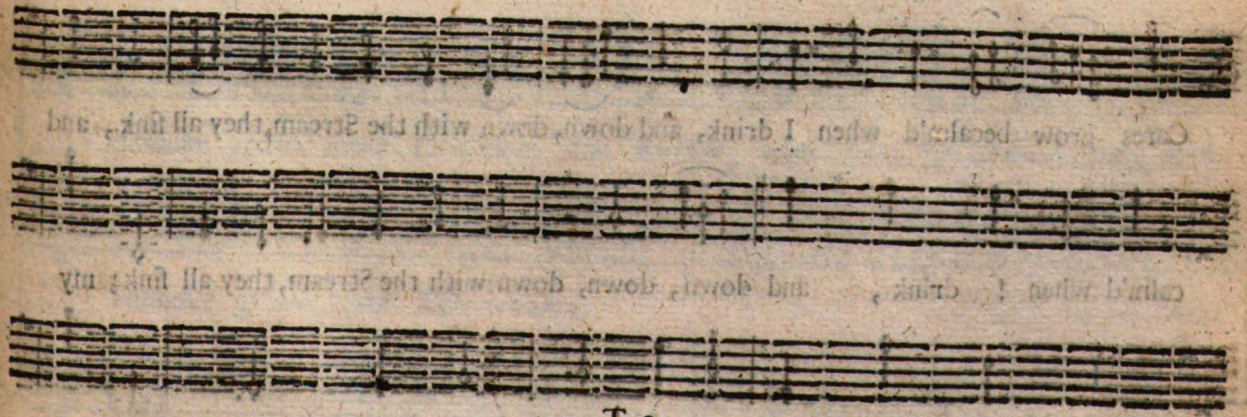 Cares grow becalm'd when I drink, and down, down with the Stream, they all sink, and
calm'd when I drink, and down, down, down with the Stream, they all sink; my
T 2